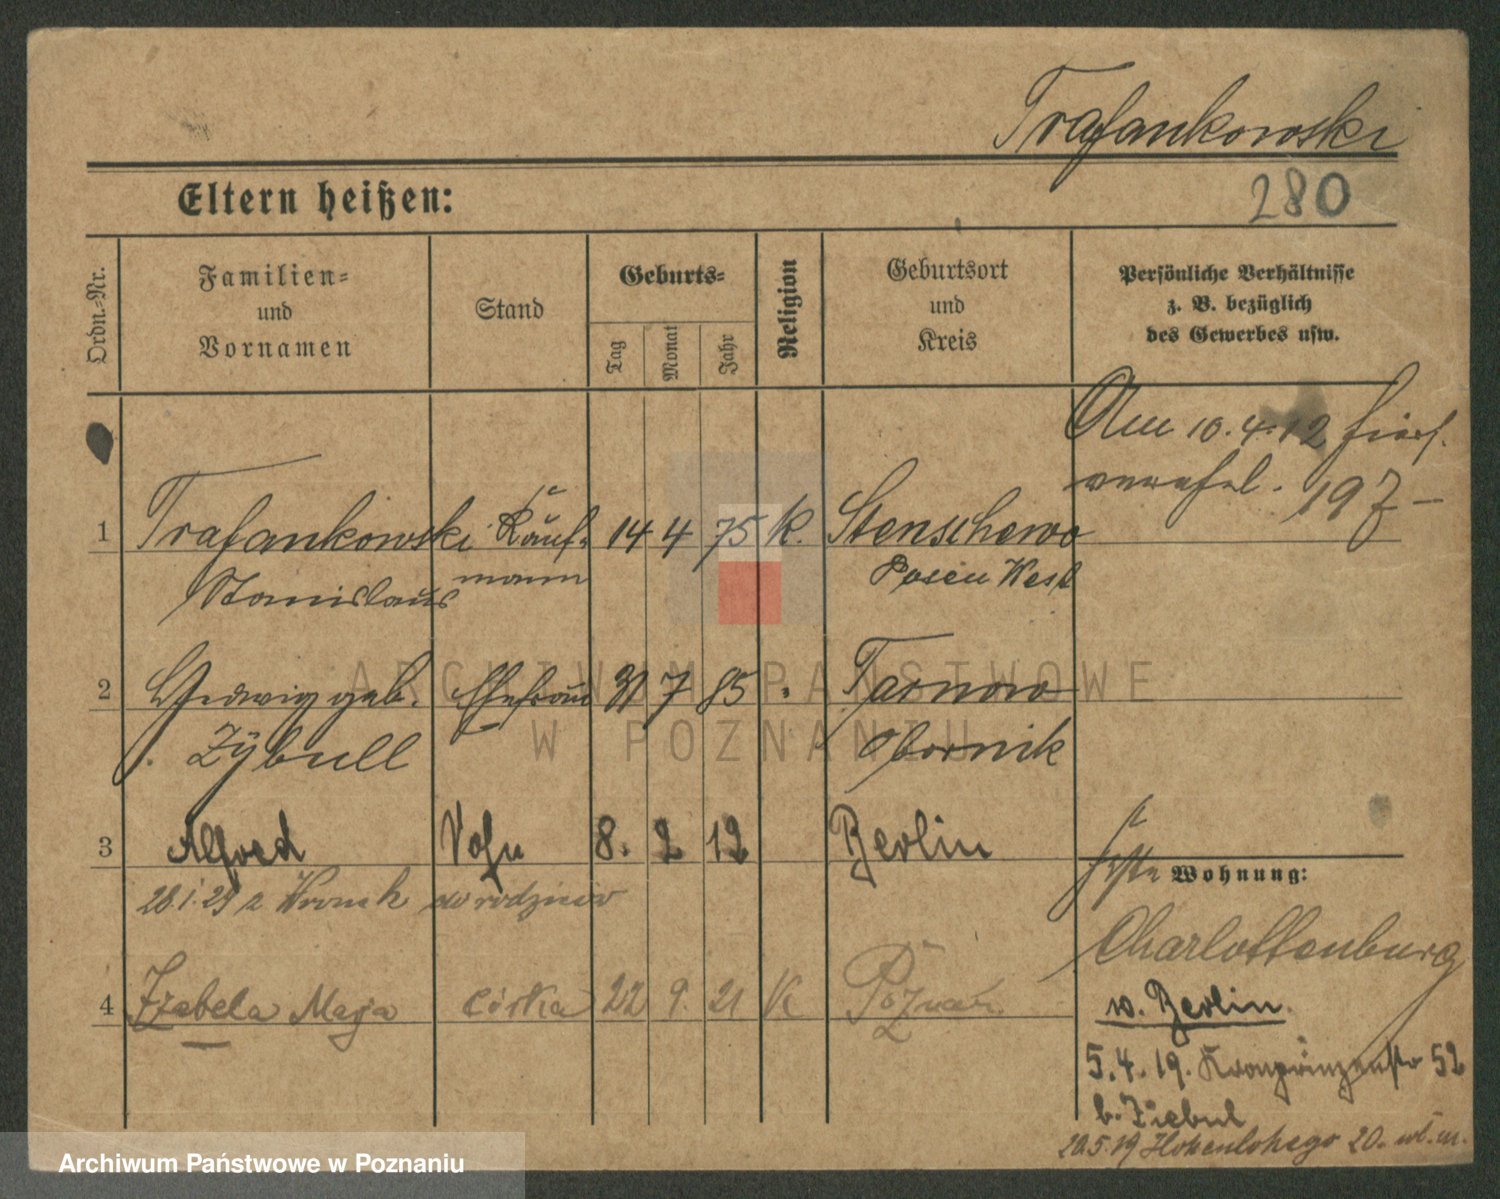 Trafankowski
Eltern heißen:
280
Ordn.-Nr.
Familien- und Vornamen
Stand
Geburts-
Tag
Monat
Jahr
Religion
Geburtsort und Kreis
Persönliche Verhältnisse
z. B. bezüglich
des Gewerbes usw.
Am 10.4.12
197-
1 Trafankowski Kauf- 14 4 75 K. Stenschewo
Stanislaus mann Posen West
2 Hedwig geb. Ehefrau 31 7 85 " Tarnowo
Zybull Obornik
3 Alfred Sohn 8. 2 12 Berlin
28.1.29 z Wronek do rodziców
4 Izabela Maja córka 22 9. 21 K Poznań
Wohnung:
Charlottenburg
n. Berlin.
5.4.19. Kronprinzenstr 52
b. Ziebul
20.5.19 Hohenlohego 20.
ARCHIWUM PAŃSTWOWE
W POZNANIU
Archiwum Państwowe w Poznaniu